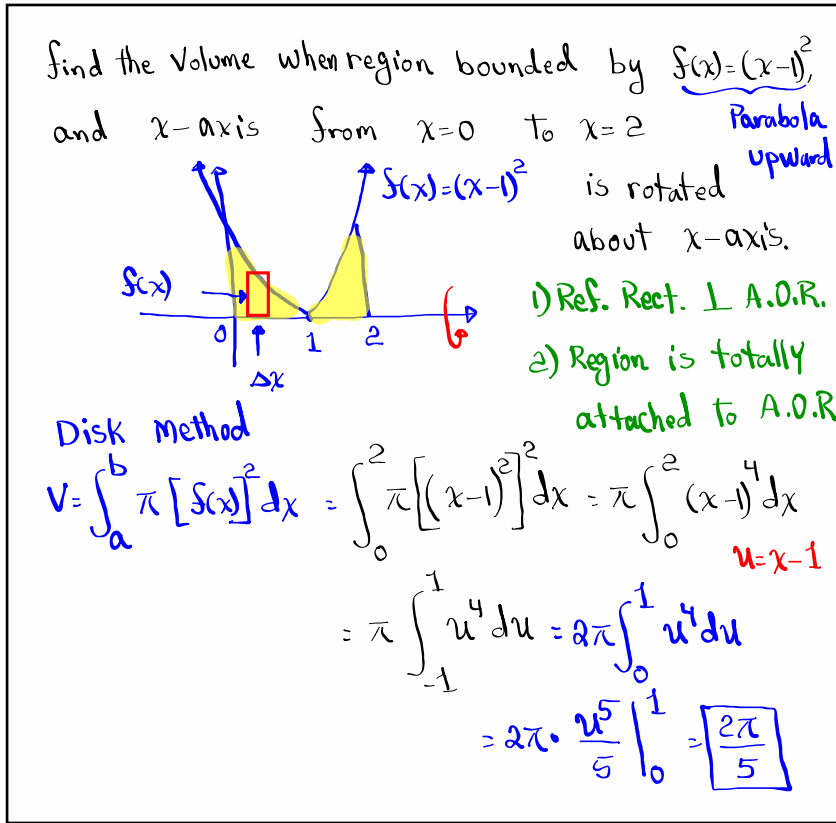 find the Volume when region bounded by f(x)=(x-1)²,
Parabola
upward
and x-axis from x=0 to x=2
is rotated
about x-axis.
f(x)=(x-1)²
f(x)
0 1 2
Δx
1) Ref. Rect. ⊥ A.O.R.
2) Region is totally
attached to A.O.R
Disk Method
V=∫_a^b π[f(x)]²dx = ∫_0^2 π[(x-1)²]²dx = π∫_0^2 (x-1)⁴dx
u=x-1
= π∫_{-1}^1 u⁴du = 2π∫_0^1 u⁴du
= 2π• u⁵/5 |_0^1 = 2π/5